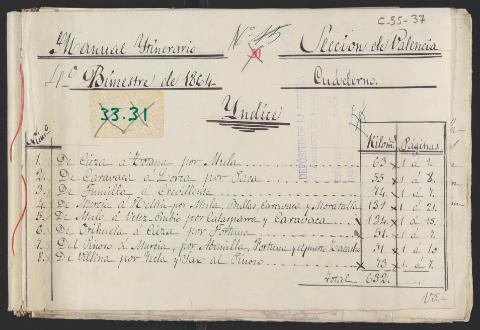 C.55-37
Manual Ytinerario
Nº 45
Seccion de Valencia
4º Bimestre de 1864
Cuaderno
33.31
Yndice
DEPÓSITO DE LA GUERRA
Kilom. Páginas
1. De Cieza á Totana por Mula 63 1 á 2.
2. De Caravaca á Lorca por Paca 55 1 á 8.
3. De Jumilla á Crevillente 74 1 á 7.
4. De Murcia á Hellin por Mula, Bullas, Caravaca y Moratalla 131 1 á 21.
5. De Mula á Velez-Rubio por Calasparra y Caravaca 134 1 á 15.
6. De Orihuela á Cieza por Fortuna 51 1 á 7.
7. Del Pinoso á Murcia, por Abanilla, Fortuna y 51 1 á 13
8. De Villena por Yecla y Sax al Pinoso 73 1 á 7.
Total 632